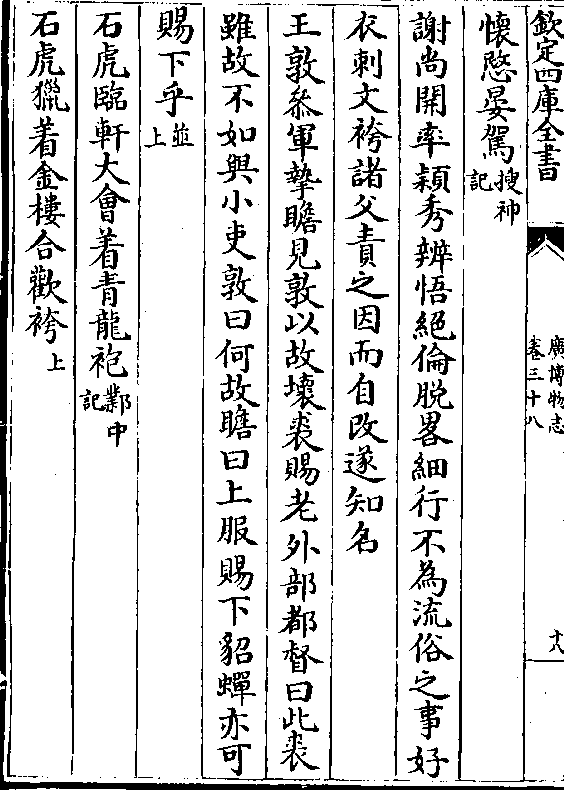 欽定四庫全書
廣博物志
卷三十八
十八
懷愍晏駕搜神記
謝尚開率穎秀辨悟絕倫脫畧細行不為流俗之事好
衣刺文袴諸父責之因而自改遂知名
王敦叅軍摯瞻見敦以故壊裘賜老外部都督曰此裘
雖故不如與小吏敦曰何故瞻曰上服賜下貂蟬亦可
賜下乎並上
石虎臨軒大會着青龍袍鄴中記
石虎獵着金樓合歡袴上